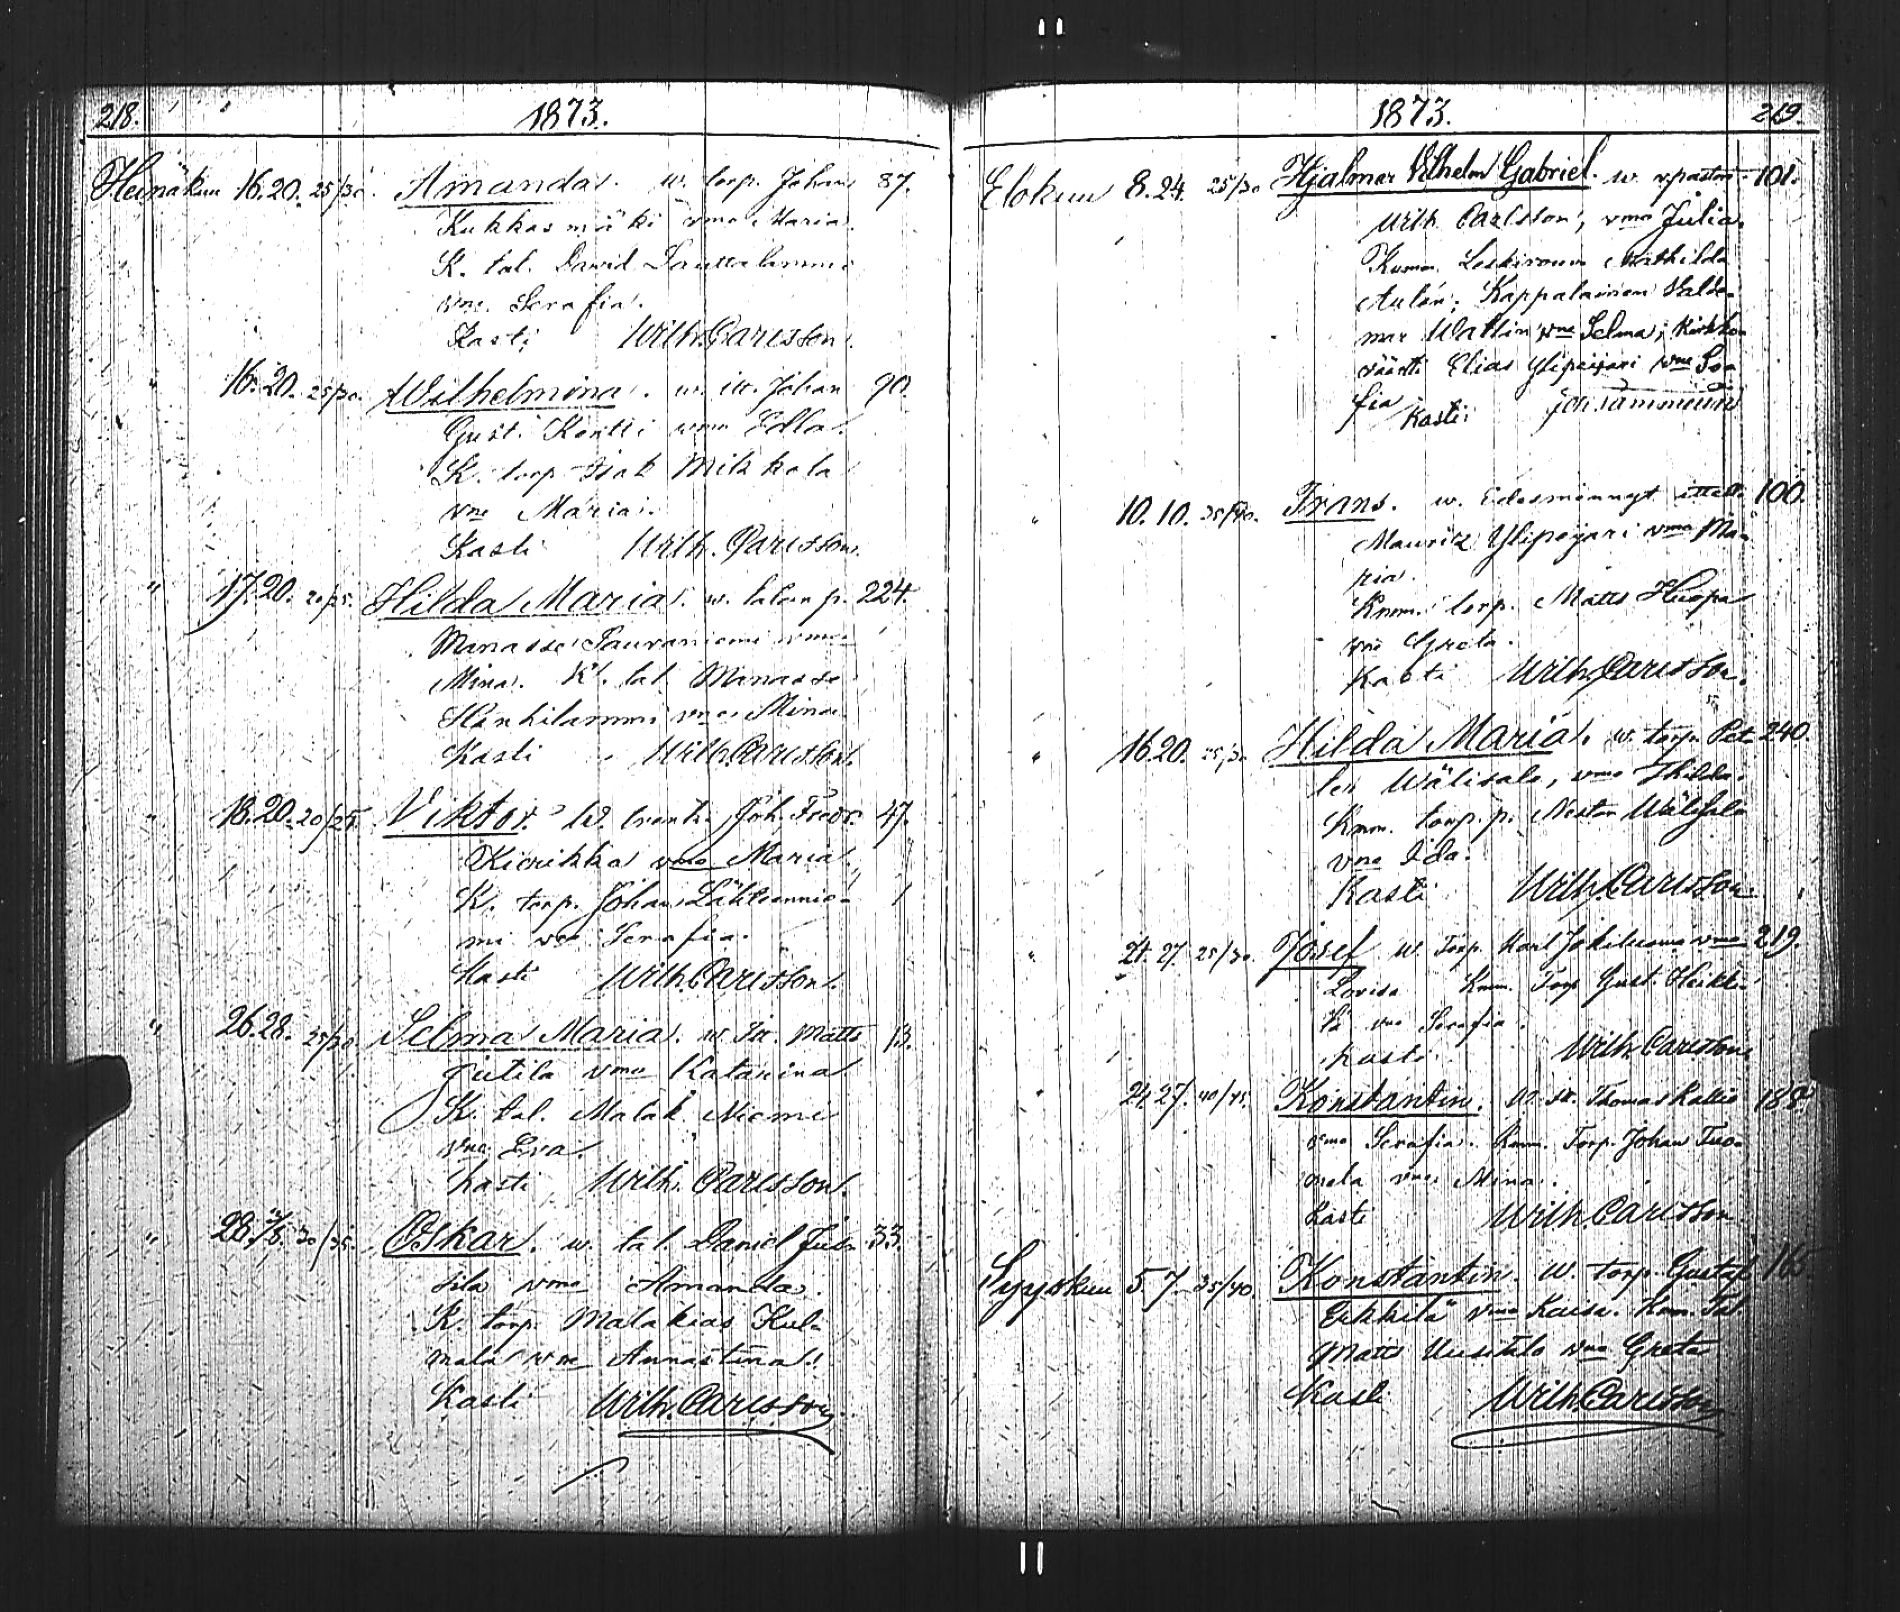 218. 1873.
Heinäkuu 16. 20. 25/30. Amanda. w. torp. Johan 87.
Kukkasmäki vmo Maria.
K. tal. David Lauttalammi
vmo. Serafia.
Kasti Wilh. Carlsson.
" 16. 20. 25/30. Wilhelmina. w. itt. Johan 90.
Gust. Kontti vmo Edla.
K. torp. Isak Mikkola
vmo Maria.
Kasti Wilh. Carlsson.
" 17. 20. 20/25. Hilda Maria. w. talon p. 224.
Manasse Lauraniemi vmo
Mina. K. tal. Manasse
Hankilammi vmo Mina
Kasti Wilh. Carlsson.
" 18. 20. 20/25. Viktor. W. Joh. Fredr. 47.
Kiviikka vmo Maria.
K. torp. Johan Lähteennie-
mi vmo Serafia.
Kasti Wilh. Carlsson.
" 26. 28. 25/30. Selma Maria. w. itr. Matts 13.
Jutila vmo Katarina
K. tal. Malak. Niemi
vmo Eva.
Kasti Wilh. Carlsson.
" 28. 30/35. Oskar. w. tal. Daniel Jus- 33.
sila vmo Amanda.
K. torp. Malakias Hul-
mala vmo Annastina.
Kasti Wilh. Carlsson
1873. 219.
Elokuu 8. 24. 25/30 Hjalmar Vilhelm Gabriel. w. v.pastori 101.
Wilh. Carlsson, vmo Julia.
Kumm. Leskirouva Mathilda
Aulén, Kappalainen Valde-
mar Wallin vmo Selma, Kirkko
väärti Elias Ylipeijari vmo So-
fia
Kasti:
" 10. 10. 35/40. Frans. w. Edesmennyt ittell. 100.
Mauritz Ylipeijari vmo Ma-
ria.
Kumm. torp. Matts Huopa
vmo Greta.
Kasti Wilh. Carlsson.
" 16. 20. 25/30 Hilda Maria. w. torp. Pet- 240.
ter Wälisalo, vmo Thilda.
Kmm. torp. p. Nestor Wälisalo
vmo Ida.
Kasti Wilh. Carlsson.
" 21. 27. 25/30. Josef w. Torp. Karl Jokiluoma vmo 219.
Lovisa Kmm. Torp Gust. Heikki-
lä vmo Serafia.
Kasti Wilh. Carlsson
" 24. 27. 40/45. Konstantin. w. itt. Thomas Kallio 188.
vmo Serafia. Kmm. Torp. Johan Tuo-
mela vmo Mina.
Kasti Wilh. Carlsson
Syyskuu 5 7. 35/40. Konstantin. w. torp. Gustaf 165
Erkkilä vmo Kaisa. Kmm. Tal.
Matts Uusitalo vmo Greta
Kasti Wilh. Carlsson